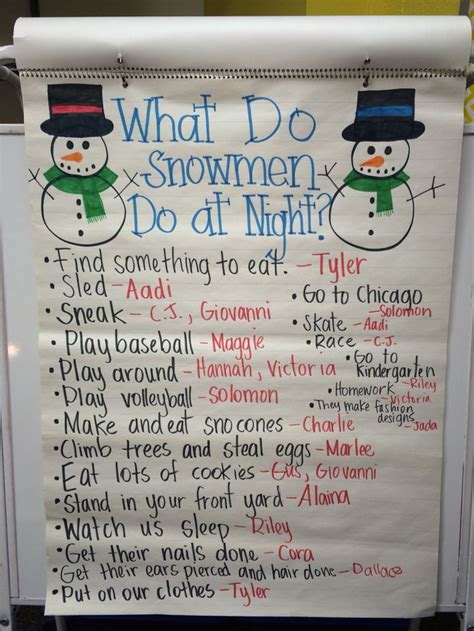 What Do
Snowmen
Do at Night?
• Find something to eat. - Tyler
• Sled - Aadi
• Sneak - C.J., Giovanni
• Play baseball - Maggie
• Play around - Hannah, Victoria
• Play volleyball - Solomon
• Make and eat sno cones - Charlie
• Climb trees and steal eggs - Marlee
• Eat lots of cookies - Gus, Giovanni
• Stand in your front yard - Alaina
• Watch us sleep - Riley
• Get their nails done - Cora
• Get their ears pierced and hair done - Dallace
• Put on our clothes - Tyler
• Go to Chicago
- Solomon
• Skate - Aadi
• Race - C.J.
• Go to
Kindergarten
- Riley
• Homework
- Victoria
• They make fashion
designs
- Jada